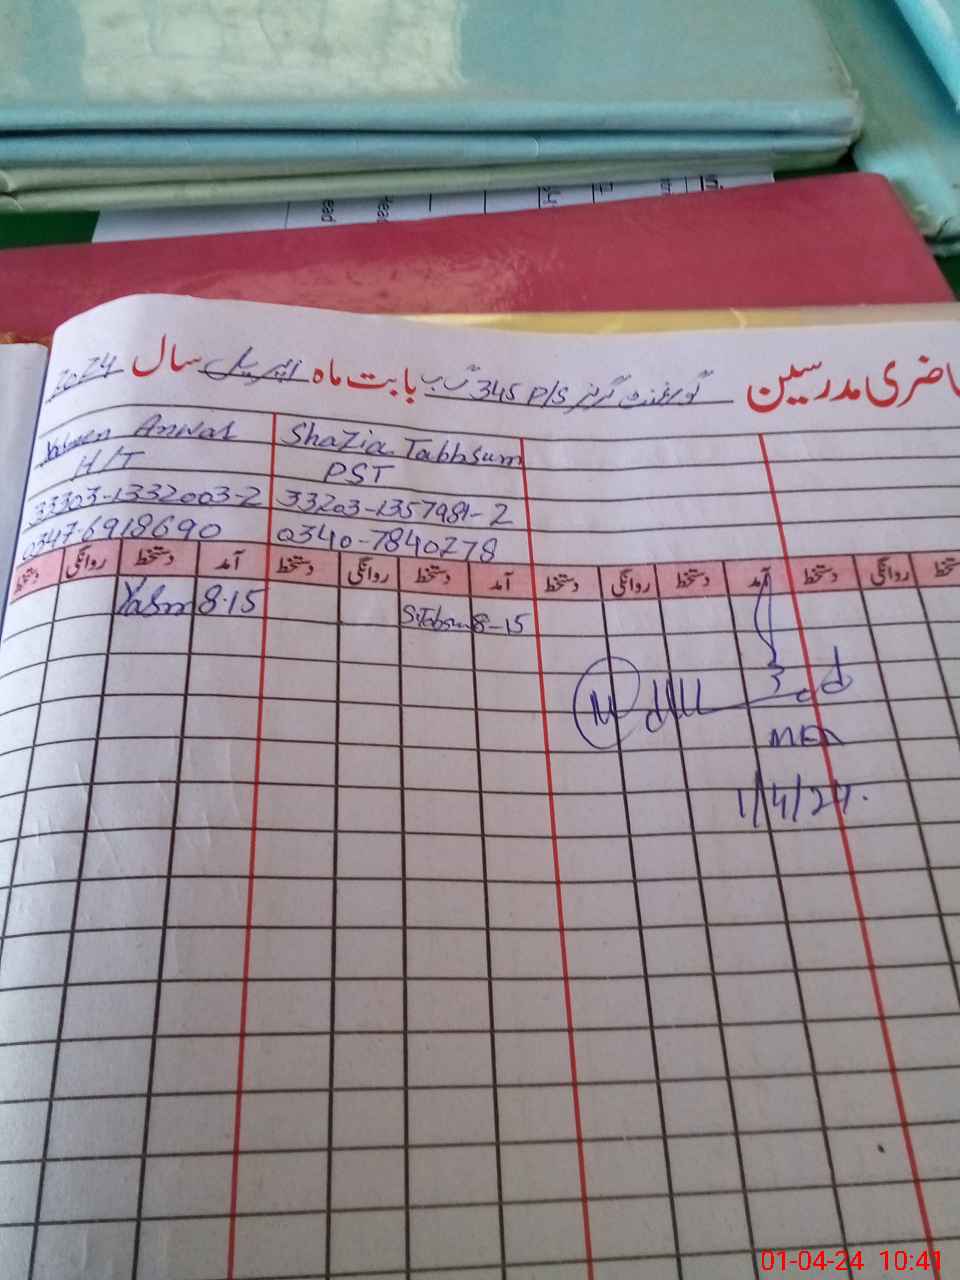 حاضری مدرسین گورنمنٹ گرلز P/S 345 گ ب بابت ماہ اپریل سال 2024
Anwar Shazia Tabbsum
H/T PST
33303-1332003-2 33203-1357981-2
0347-6918690 0340-7840278
دستخط روانگی دستخط آمد دستخط روانگی دستخط آمد دستخط روانگی دستخط آمد دستخط روانگی
8-15 S.Tabsum 8-15
1/4/24.
ead
Head
01-04-24 10:41